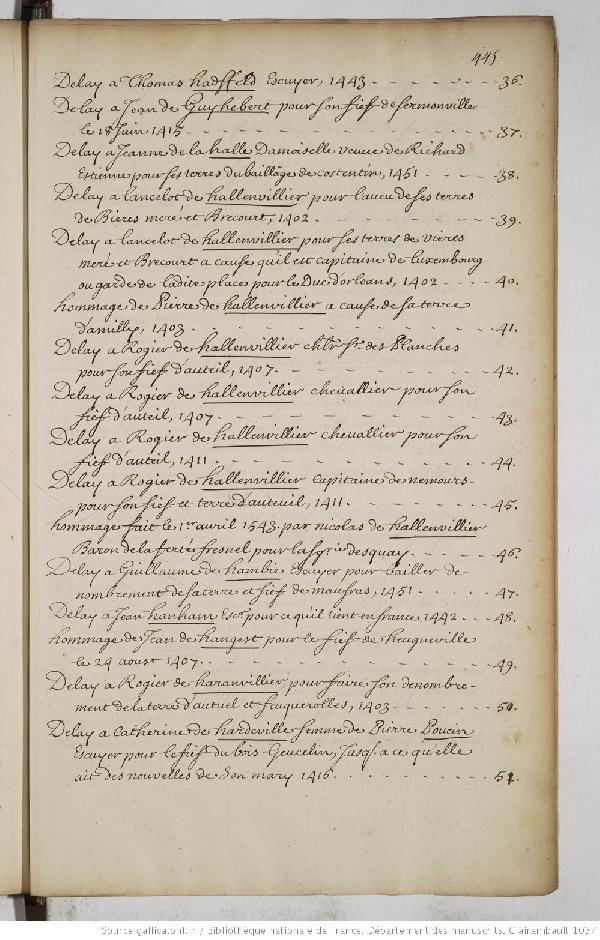 445.
Delay a Thomas hadffeld Escuyer, 1443 - - - - - - - 36.
Delay a Jean de Guyhebert pour son fief de sermonville
le 18 Juin 1415 - - - - - - - 37.
Delay a Jeanne de la halle Damoiselle veuve de Richard
Estienne pour ses terres du bailliage de costentin, 1451 - - - 38.
Delay a lancelot de hallenvillier pour l'aveu de ses terres
de Bieres meré et Brecourt, 1402 - - - - - - - 39.
Delay a lancelot de hallenvillier pour ses terres de vieres
meré et Brecourt a cause qu'il est capitaine de luxembourg
ou garde de ladite place pour le Duc d'orleans, 1402 - - - - 40.
hommage de Pierre de hallenvillier a cause de sa terre
d'amilly, 1403 - - - - - - - 41.
Delay a Rogier de hallenvillier chlr sr. des Planches
pour son fief d'auteil, 1407 - - - - - - - 42.
Delay a Rogier de hallenvillier chevallier pour son
fief d'auteil, 1407 - - - - - - - 43.
Delay a Rogier de hallenvillier chevallier pour son
fief d'auteil, 1411 - - - - - - - 44.
Delay a Rogier de hallenvillier capitaine de nemours
pour son fief et terre d'auteuil, 1411 - - - - - 45.
hommage fait le 1er avril 1543 par nicolas de hallenvillier
Baron de la ferté fresnel pour la sgrie desquay - - - - - 46.
Delay a Guillaume de hambie Escuyer pour bailler de-
nombrement de sa terre et fief de maufras, 1451 - - - - 47.
Delay a Jean hanham Escr. pour ce qu'il tient en france, 1442 - - 48.
hommage de Jean de hangest pour le fief de heuqueville
le 24 aoust 1407 - - - - - - - 49.
Delay a Rogier de haranvillier pour faire son denombre-
ment de la terre d'autuel et feuquerolles, 1403 - - - - - 50.
Delay a Catherine de hardeville femme de Pierre Poucin
Escuyer pour le fief du bois-Geucelin, Jusq. a ce qu'elle
ait des nouvelles de son mary 1416 - - - - - - - 51.
Source gallica.bnf.fr / Bibliothèque nationale de France. Département des manuscrits. Clairambault 1037